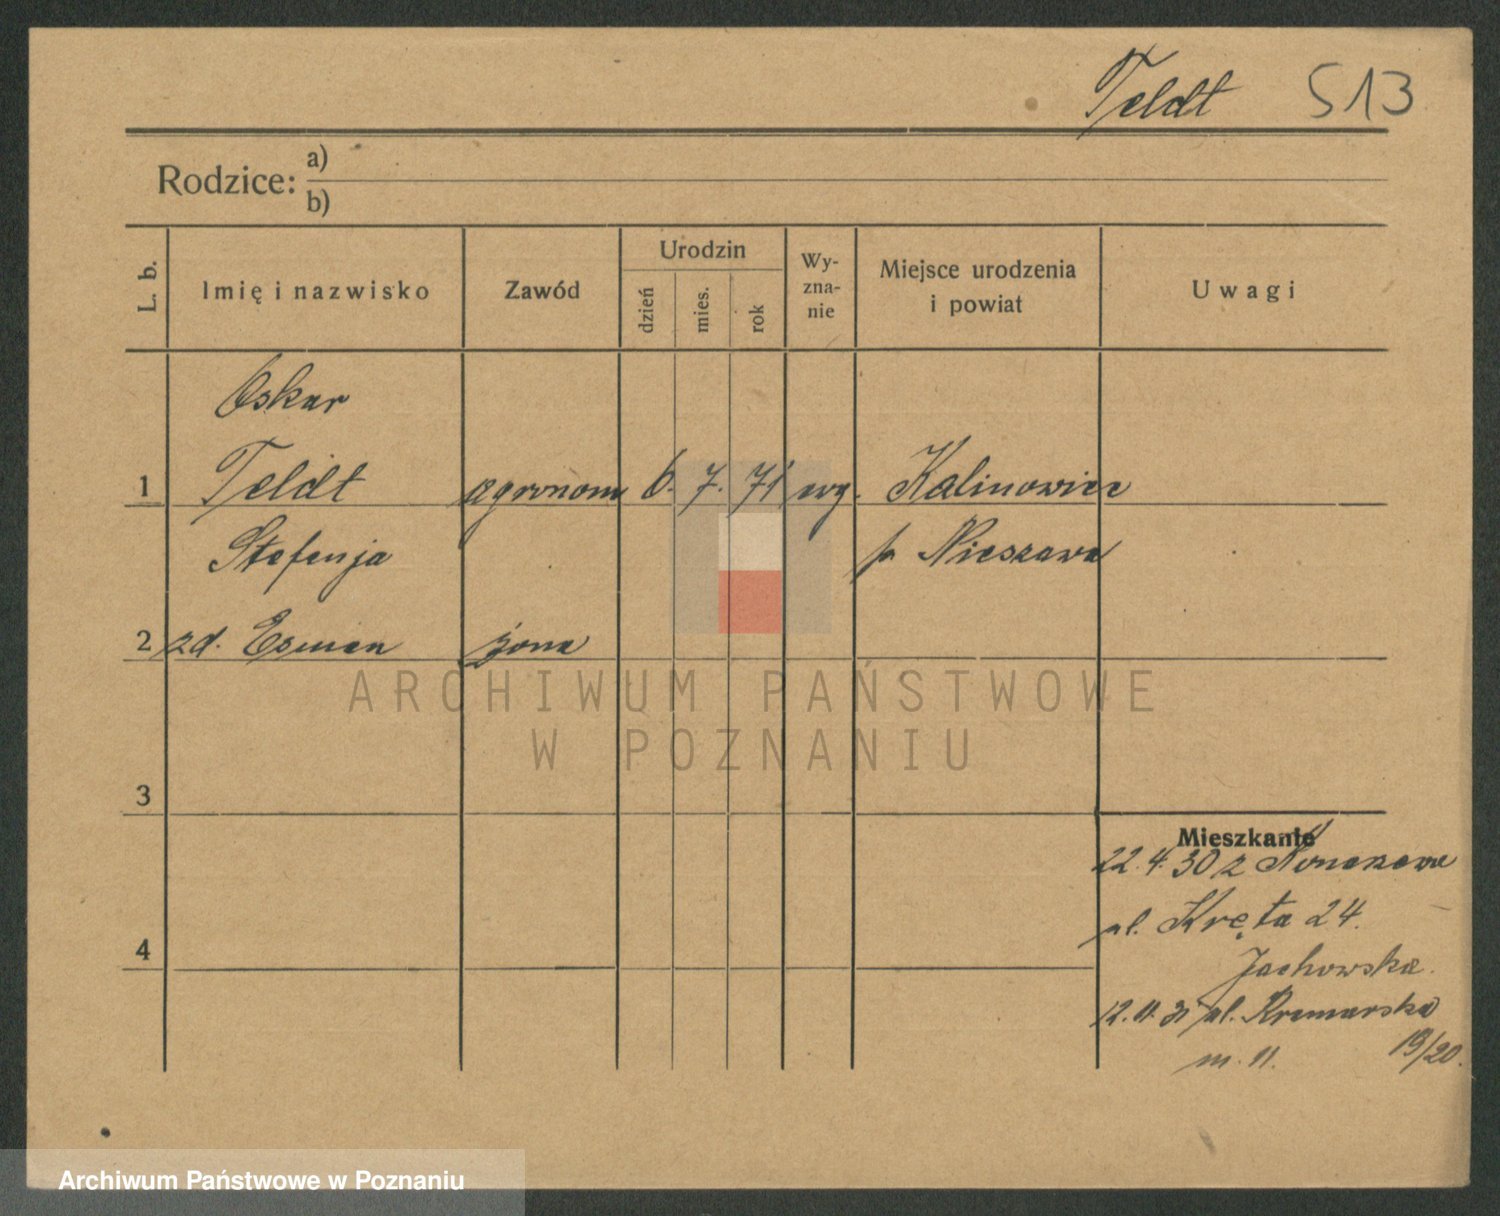 Teldt 513
Rodzice: a)
b)
L. b. Imię i nazwisko Zawód Urodzin dzień mies. rok Wy-zna-nie Miejsce urodzenia i powiat Uwagi
Oskar
1 Teldt agronom 6. 7. 71 ewg. Kalinowiec
Stefanja p. Nieszawa
2 zd. Esman żona
ARCHIWUM PAŃSTWOWE
W POZNANIU
3
Mieszkanie
22.4.30 z
ul. Kręta 24.
4
Jachowska.
12.11.31 ul. Kramarska
19/20.
m. 11.
Archiwum Państwowe w Poznaniu